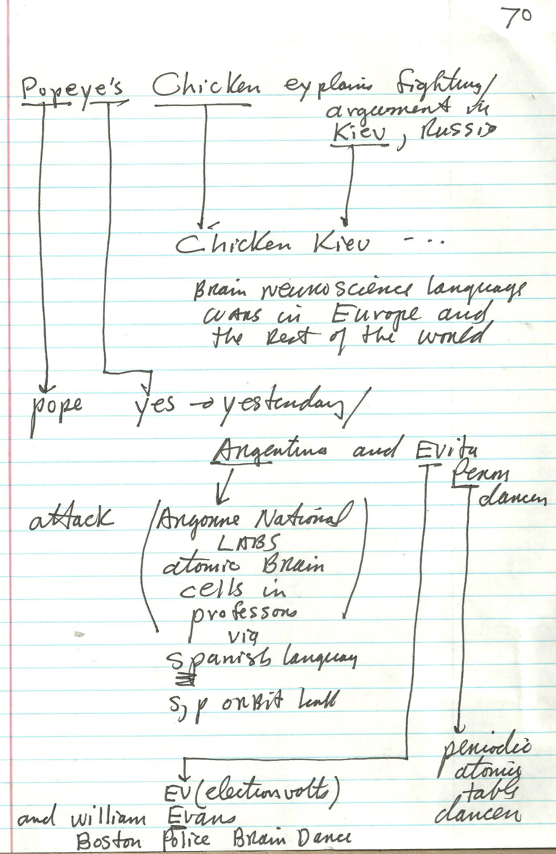 70
Popeye's Chicken explains fighting/
argument in
Kiev, Russia
Chicken Kiev - ...
Brain neuroscience language
wars in Europe and
the Rest of the world
pope yes → yesterday/
Argentina and Evita
Peron
dancer
attack (Argonne National
LABS
atomic Brain
cells in
professors
via
Spanish language
s, p orbit link
periodic
atomic
table
dancer
EV (electron volts)
and william Evans
Boston Police Brain Dance